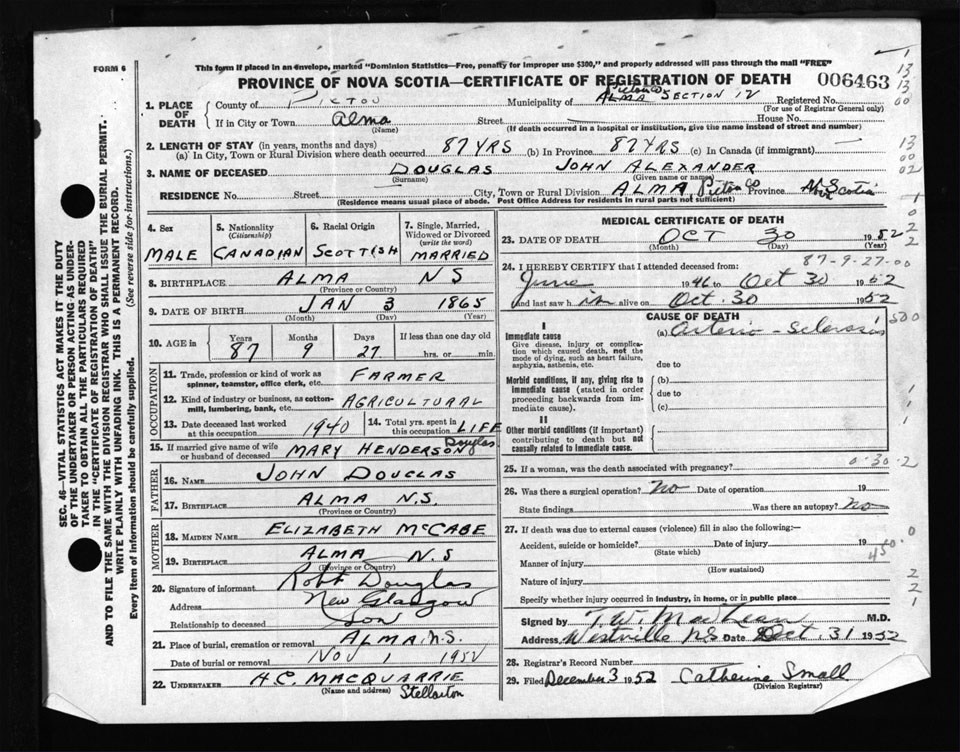 FORM 6
This form if placed in an envelope, marked "Dominion Statistics—Free, penalty for improper use $300," and properly addressed will pass through the mail "FREE"
PROVINCE OF NOVA SCOTIA—CERTIFICATE OF REGISTRATION OF DEATH 006463
1. PLACE OF DEATH County of PICTOU Municipality of Pictou Co ALMA SECTION 12 Registered No.
(For use of Registrar General only)
If in City or Town Alma Street House No.
(Name) (If death occurred in a hospital or institution, give the name instead of street and number)
2. LENGTH OF STAY (in years, months and days)
(a) In City, Town or Rural Division where death occurred 87 YRS (b) In Province 87 YRS (c) In Canada (if immigrant)
3. NAME OF DECEASED DOUGLAS JOHN ALEXANDER
(Surname) (Given name or names)
RESIDENCE No. Street City, Town or Rural Division ALMA, Pictou Co Province N. Scotia
(Residence means usual place of abode. Post Office Address for residents in rural parts not sufficient)
4. Sex MALE
5. Nationality (Citizenship) CANADIAN
6. Racial Origin SCOTTISH
7. Single, Married, Widowed or Divorced (write the word) MARRIED
8. BIRTHPLACE ALMA N S
(Province or Country)
9. DATE OF BIRTH JAN 3 1865
(Month) (Day) (Year)
10. AGE in Years 87 Months 9 Days 27 If less than one day old hrs. or min.
OCCUPATION
11. Trade, profession or kind of work as spinner, teamster, office clerk, etc. FARMER
12. Kind of industry or business, as cotton-mill, lumbering, bank, etc. AGRICULTURAL
13. Date deceased last worked at this occupation 1940
14. Total yrs. spent in this occupation LIFE
15. If married give name of wife or husband of deceased MARY HENDERSON Douglas
FATHER
16. NAME JOHN DOUGLAS
17. BIRTHPLACE ALMA N.S.
(Province or Country)
MOTHER
18. MAIDEN NAME ELIZABETH McCABE
19. BIRTHPLACE ALMA N.S
(Province or Country)
20. Signature of informant Robt Douglas
Address New Glasgow
Relationship to deceased Son
21. Place of burial, cremation or removal ALMA N.S.
Date of burial or removal NOV 1 1952
22. UNDERTAKER H.C. MACQUARRIE
(Name and address) Stellarton
MEDICAL CERTIFICATE OF DEATH
23. DATE OF DEATH OCT 30 1952
(Month) (Day) (Year)
87-9-27-00
24. I HEREBY CERTIFY that I attended deceased from:
June 1946 to Oct 30 1952
and last saw him alive on Oct. 30 1952
CAUSE OF DEATH
I
Immediate cause (a) Arterio-Sclerosis 500
Give disease, injury or complication which caused death, not the mode of dying, such as heart failure, asphyxia, asthenia, etc.
due to
Morbid conditions, if any, giving rise to immediate cause (stated in order proceeding backwards from immediate cause).
(b)
due to
(c)
II
Other morbid conditions (if important) contributing to death but not causally related to immediate cause.
25. If a woman, was the death associated with pregnancy? 0-30-2
26. Was there a surgical operation? No Date of operation 19
State findings Was there an autopsy? No
27. If death was due to external causes (violence) fill in also the following:—
Accident, suicide or homicide? Date of injury 19
(State which)
Manner of injury 450.0
(How sustained)
Nature of injury
Specify whether injury occurred in industry, in home, or in public place
Signed by T.W. MacLean M.D.
Address Westville N.S Date Oct. 31 1952
28. Registrar's Record Number
29. Filed December 3 1952 Catherine Small
(Division Registrar)
SEC. 46—VITAL STATISTICS ACT MAKES IT THE DUTY
OF THE UNDERTAKER OR PERSON ACTING AS UNDER-
TAKER TO OBTAIN ALL THE PARTICULARS REQUIRED
IN THE "CERTIFICATE OF REGISTRATION OF DEATH"
AND TO FILE THE SAME WITH THE DIVISION REGISTRAR WHO SHALL ISSUE THE BURIAL PERMIT.
WRITE PLAINLY WITH UNFADING INK. THIS IS A PERMANENT RECORD.
Every item of information should be carefully supplied. (See reverse side for instructions.)